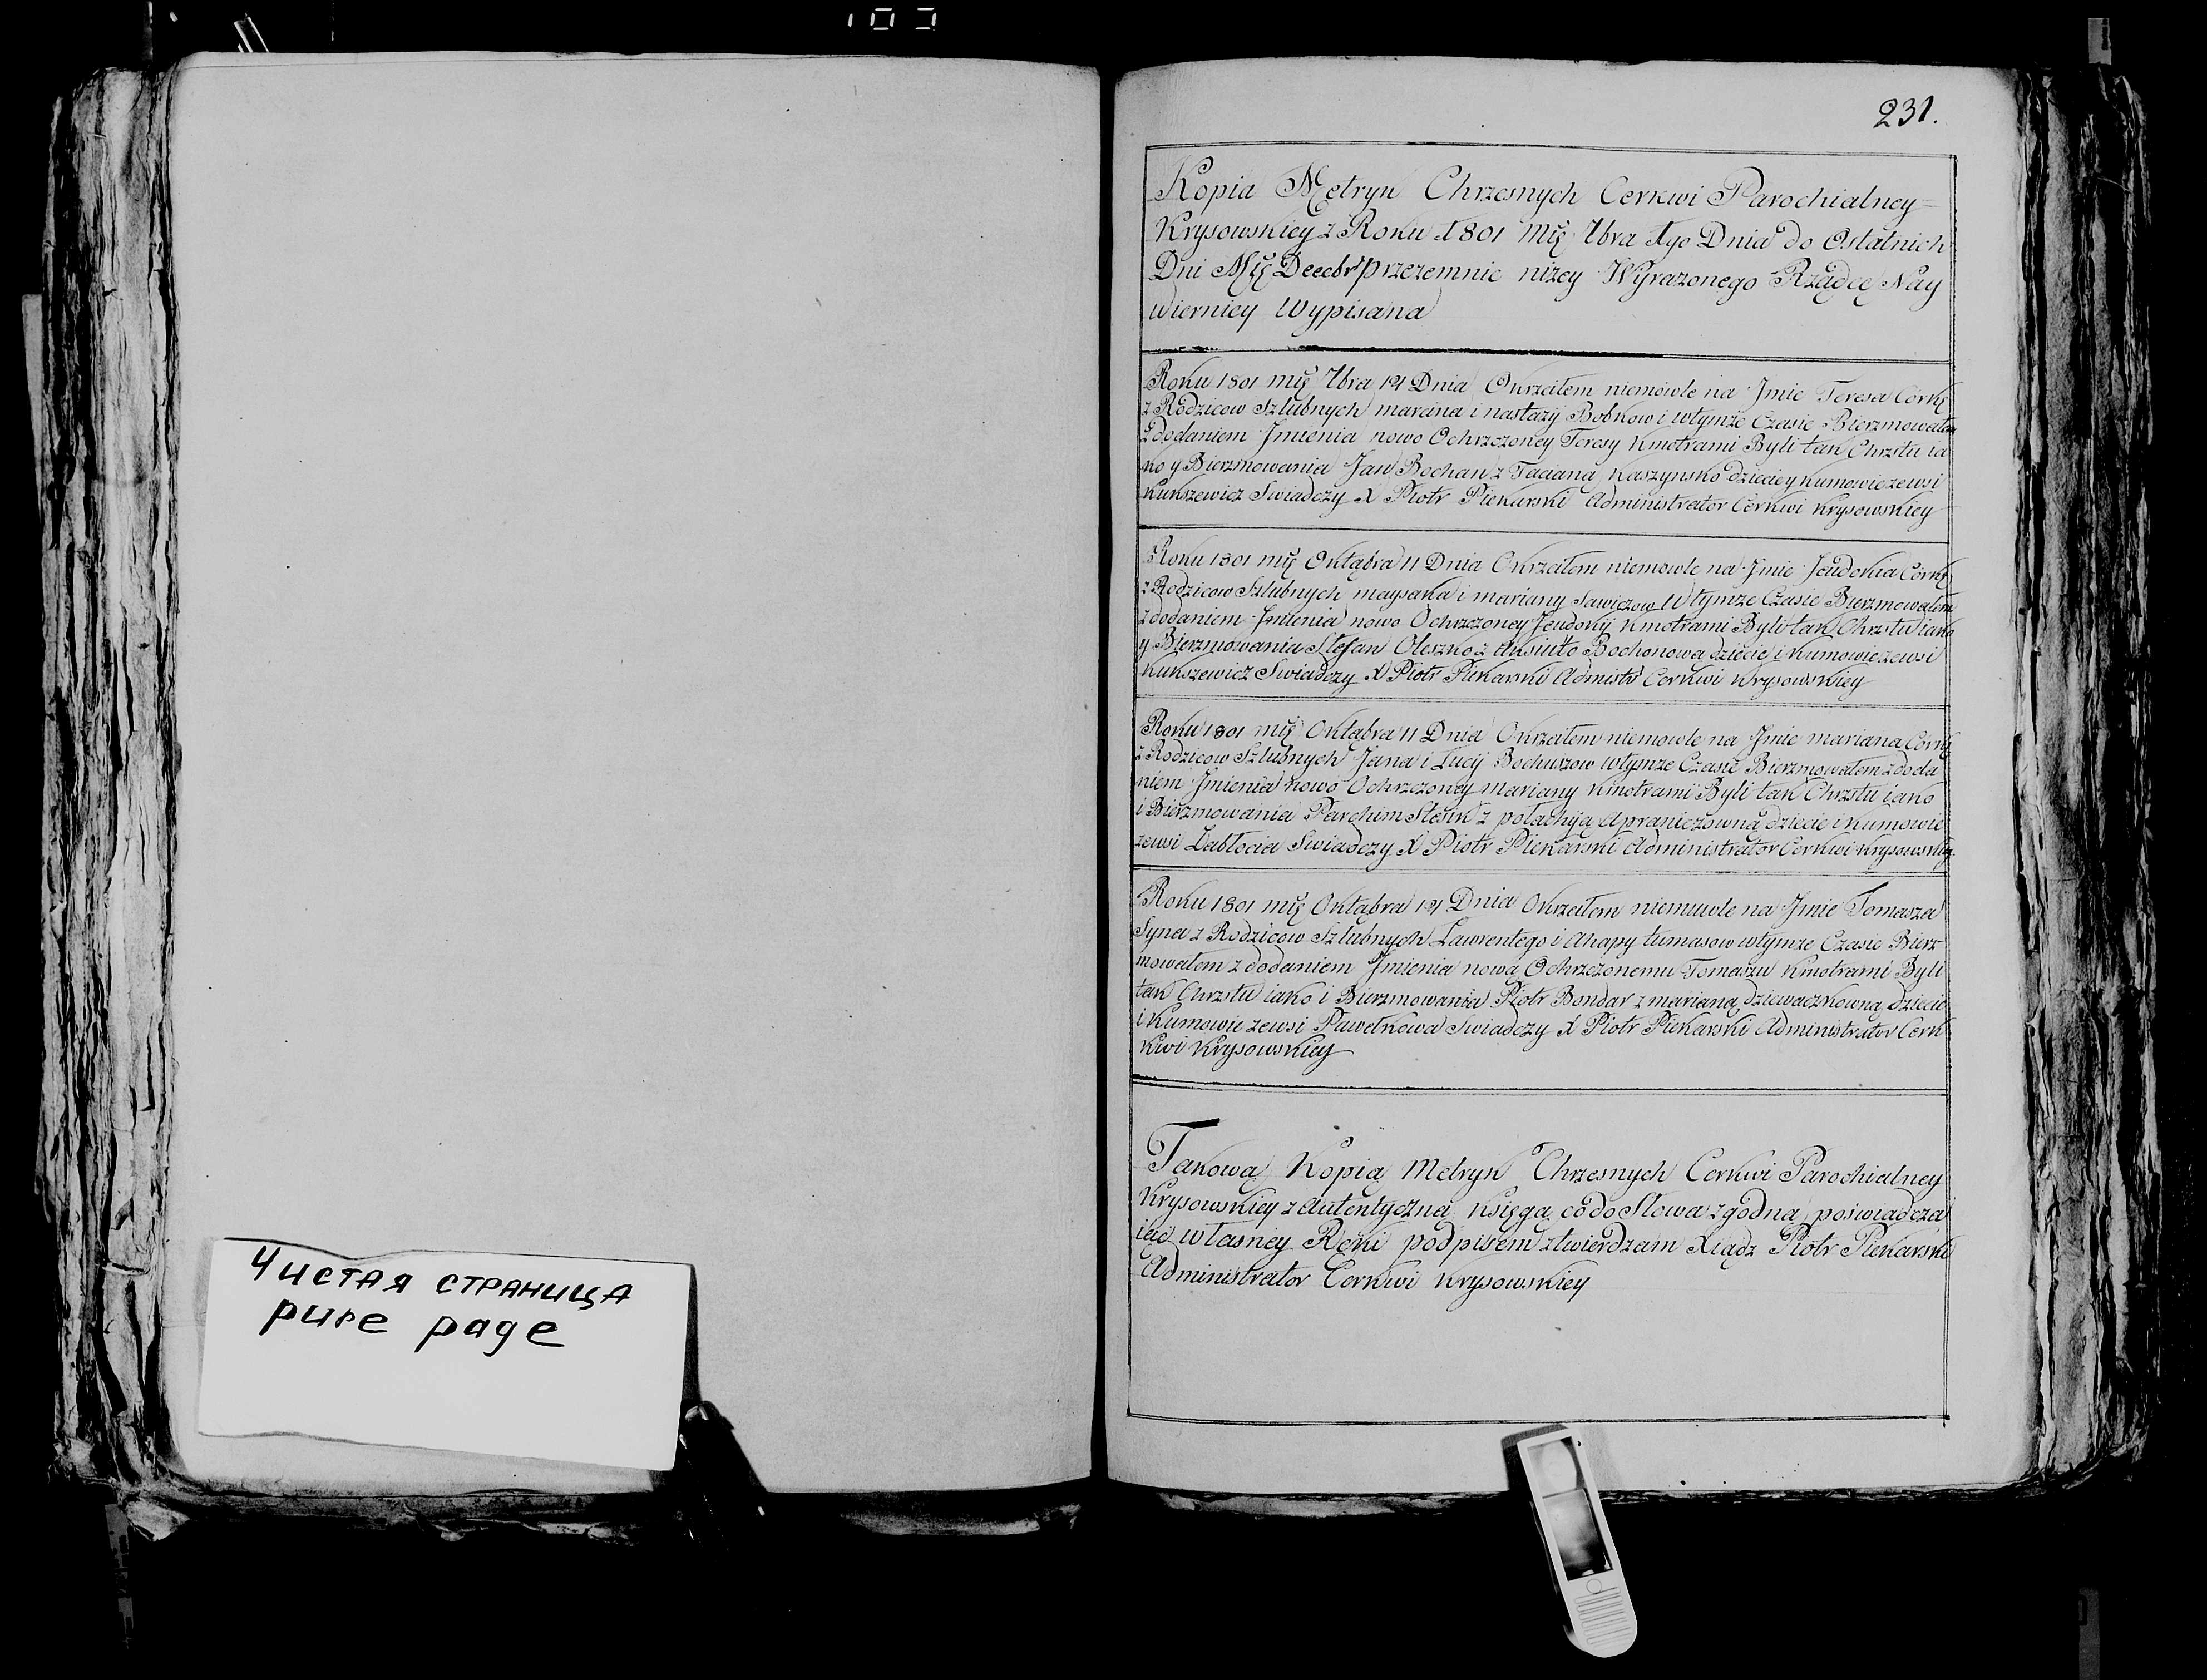 231.
Kopia Metryk Chrzesnych Cerkwi Parochialney
Krysowskiey z Roku 1801 Mcę 7bra 1go Dnia do Ostatnich
Dni Mcę Decebr przezemnie niżey Wyrazonego Rządcę Nay
wierniey Wypisana
Roku 1801 mcę 7bra Dnia Okrzciłem niemowle na Jmie Teresa Corkę
z Rodzicow Szlubnych marcina i nastazÿ Bobkow i wtymże Czasie Bierzmowałem
z dodaniem Jmienia nowo Ochrzczoney Teresy Kmotrami Byli tak Chrztu ia
ko y Bierzmowania Jan Bochan z Tacianą Kaszynsko dziecie y Kumowie zewsi
Kukszewicz Swiadczy X Piotr Piekarski Administrator Cerkwi Krysowskiey
Roku 1801 mcę Oktąbra 11 Dnia Okrzciłem niemowle na Jmie Jeudokia Corkę
z Rodzicow Szlubnych maysaka i mariany Sawiczow Wtymze Czasie Bierzmowałem
z dodaniem Jmienia nowo Ochrzczoney Jeudokÿ Kmotrami Byli tak Chrzstu iako
y Bierzmowania Stefan Oleszko z Bochonowa dziecie i Kumowie zewsi
Kukszewicz Swiadczy X Piotr Piekarski Admistr Cerkwi Krysowskiey
Roku 1801 mcę Oktąbra 11 Dnia Okrzciłem niemowle na Jmie mariana Corkę
z Rodzicow Szlubnych Jana i Lucÿ Bochuszow wtymze Czasie Bierzmowałem z doda
niem Jmienia nowo Ochrzczoney mariany Kmotrami Byli tak Chrzstu iako
i Bierzmowania Parchim Stesik z połachÿą Apraniczowną dziecie i Kumowie
zewsi Zabłocia Swiadczy X Piotr Piekarski Administrator Cerkwi Krysowskiey
Roku 1801 mcę Oktąbra Dnia Okrzciłem niemowle na Jmie Tomasza
Syna z Rodzicow Szlubnych Lawrentego i Ahapy tumasow wtymze Czasie Bierz
mowałem z dodaniem Jmienia nowa Ochrzczonemu Tomaszu Kmotrami Byli
tak Chrzstu iako i Bierzmowania Piotr Bondar z marianą dziewaczkowną dziecie
i Kumowie zewsi Pawełkowa Swiadczy X Piotr Piekarski Administrator Cerk
kwi Krysowskiey
Takową Kopią Metryk Chrzesnych Cerkwi Parochialney
Krysowskiey z autentyczną Księgą co do Słowa zgodną poswiadcza
iąc własney Ręki podpisem ztwierdzam Xiądz Piotr Piekarski
Administrator Cerkwi Krysowskiey
Чистая страница
pure page